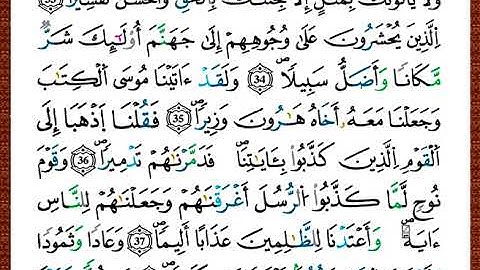 وَلَا يَأْتُونَكَ بِمَثَلٍ إِلَّا جِئْنَٰكَ بِٱلْحَقِّ وَأَحْسَنَ تَفْسِيرًا ۝33
ٱلَّذِينَ يُحْشَرُونَ عَلَىٰ وُجُوهِهِمْ إِلَىٰ جَهَنَّمَ أُو۟لَٰٓئِكَ شَرٌّ
مَّكَانًا وَأَضَلُّ سَبِيلًا ۝34 وَلَقَدْ ءَاتَيْنَا مُوسَى ٱلْكِتَٰبَ
وَجَعَلْنَا مَعَهُۥٓ أَخَاهُ هَٰرُونَ وَزِيرًا ۝35 فَقُلْنَا ٱذْهَبَآ إِلَى
ٱلْقَوْمِ ٱلَّذِينَ كَذَّبُوا۟ بِـَٔايَٰتِنَا فَدَمَّرْنَٰهُمْ تَدْمِيرًا ۝36 وَقَوْمَ
نُوحٍ لَّمَّا كَذَّبُوا۟ ٱلرُّسُلَ أَغْرَقْنَٰهُمْ وَجَعَلْنَٰهُمْ لِلنَّاسِ
ءَايَةً وَأَعْتَدْنَا لِلظَّٰلِمِينَ عَذَابًا أَلِيمًا ۝37 وَعَادًا وَثَمُودَا۟